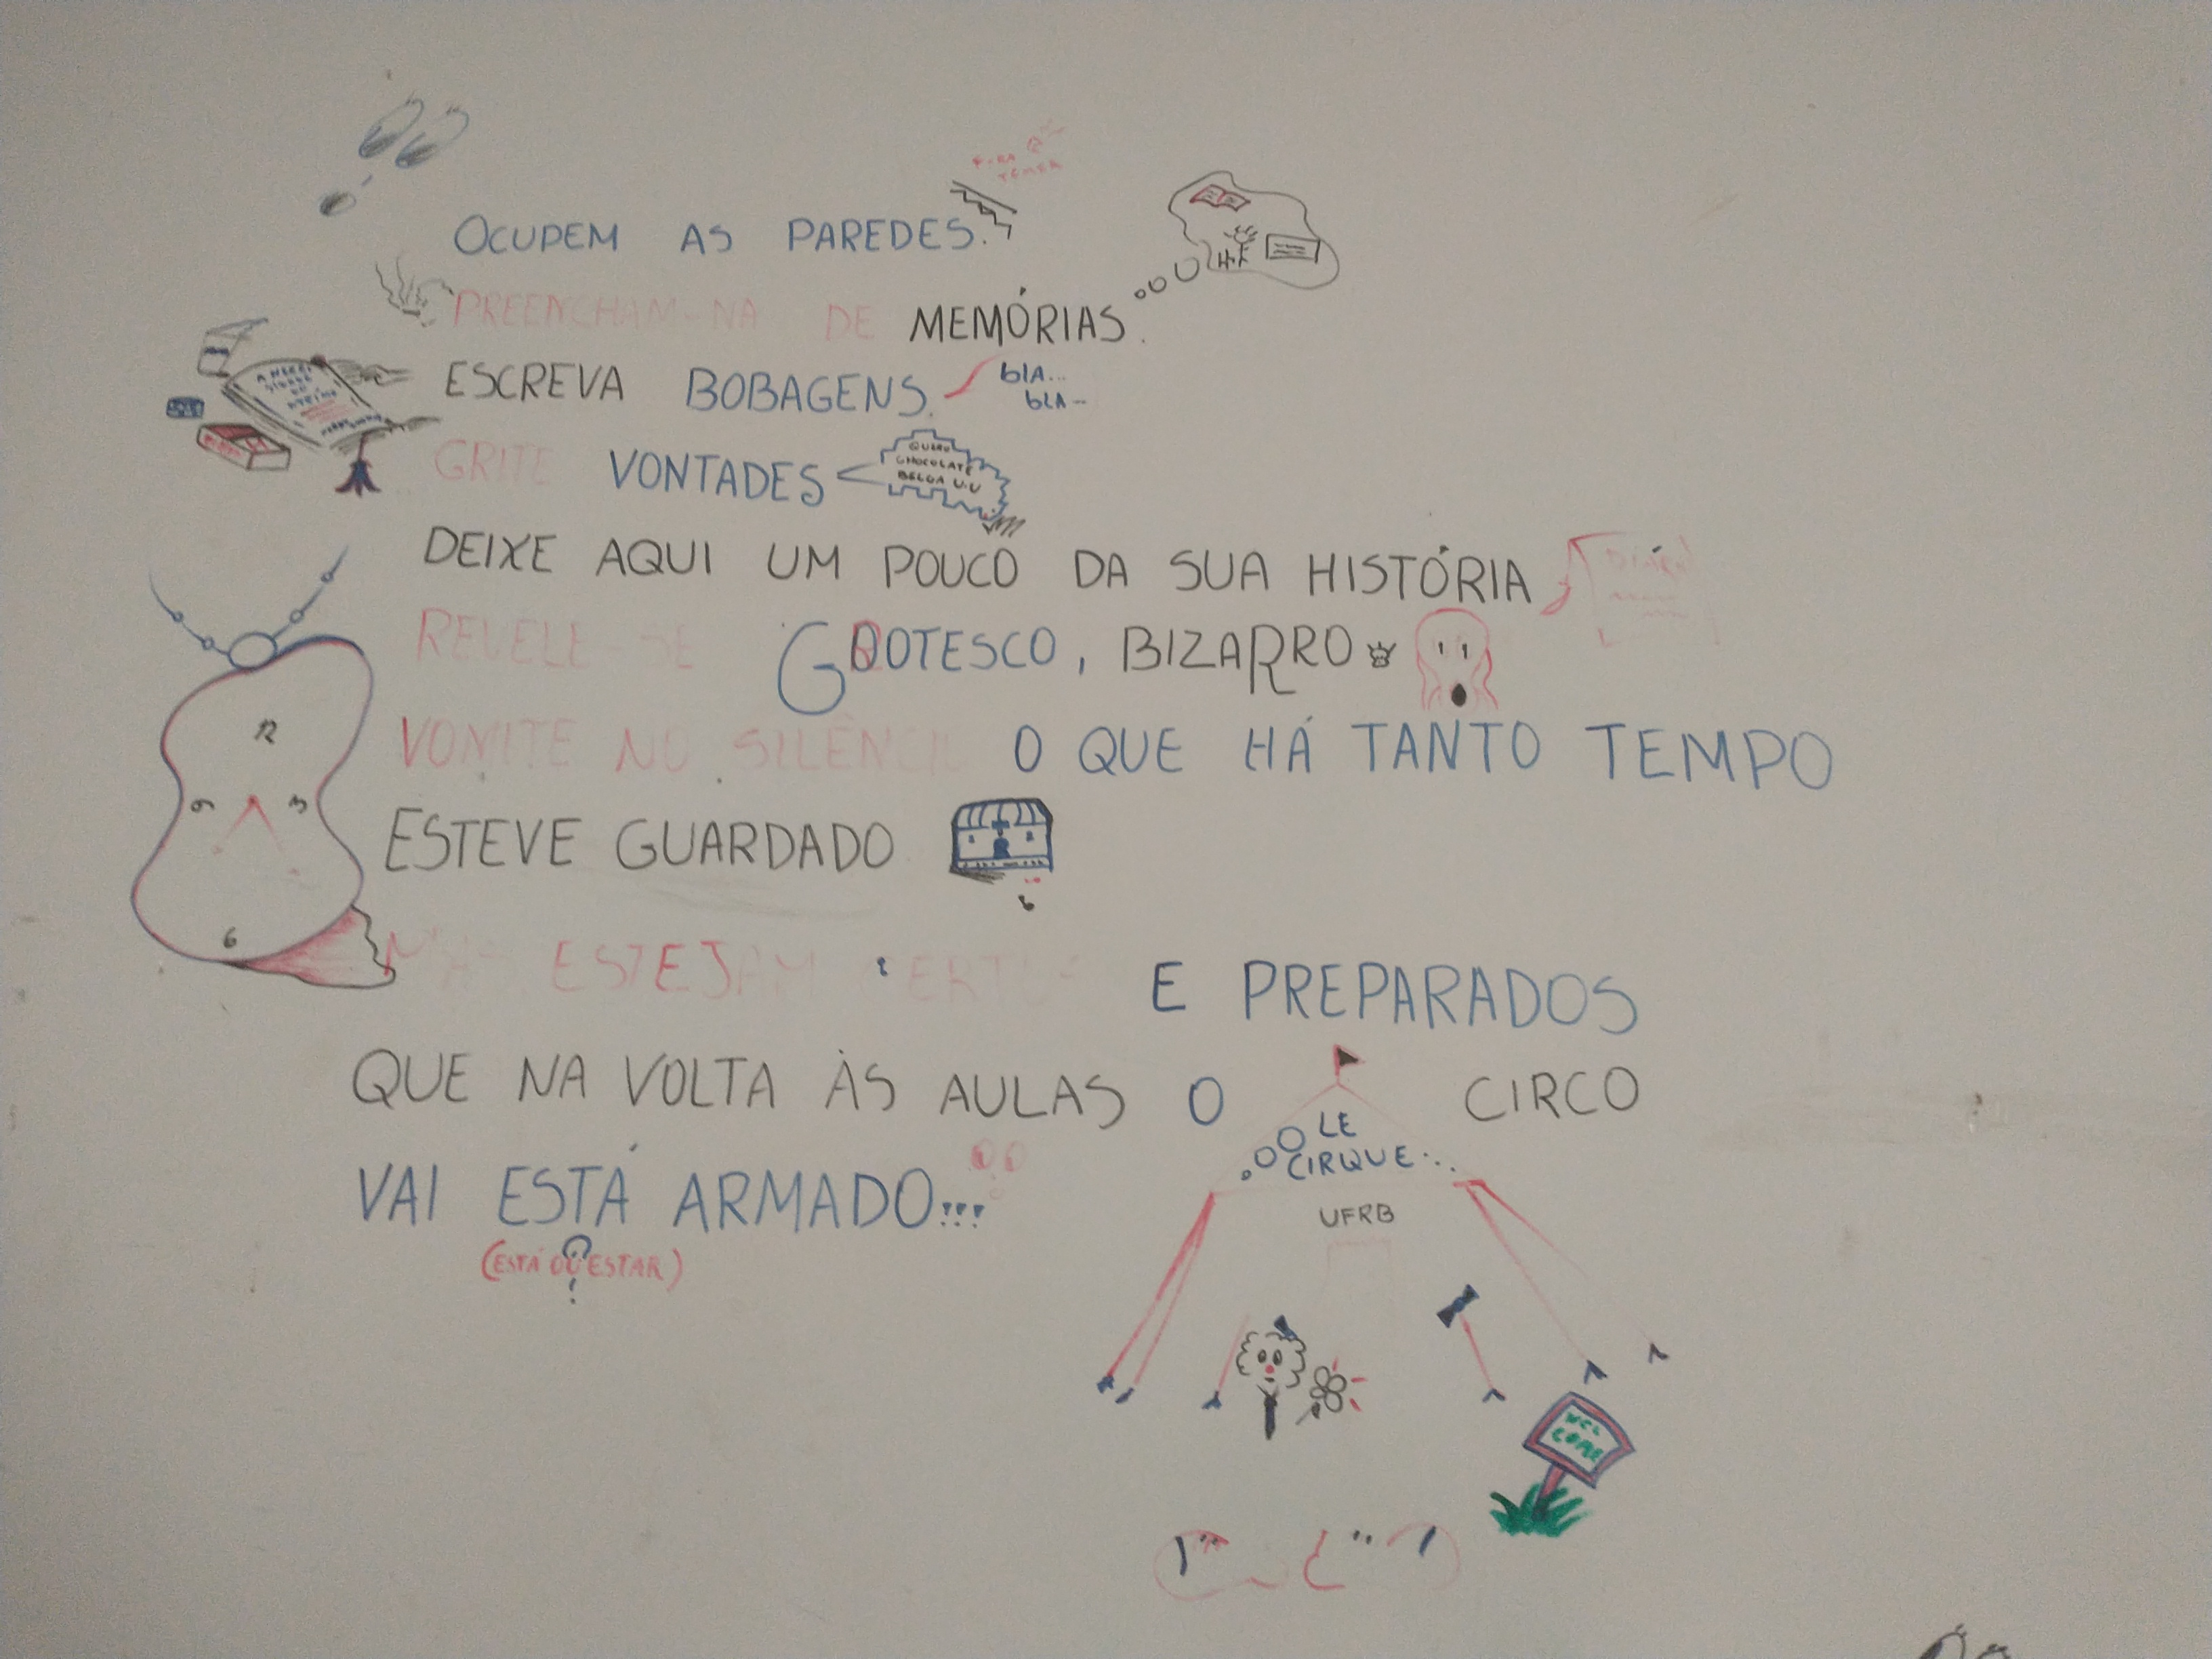 OCUPEM AS PAREDES.
PREENCHAM-NA DE MEMÓRIAS.
ESCREVA BOBAGENS.
blA...
bLA-
GRITE VONTADES
QUERO
CHOCOLATE
BELGA U.U
DEIXE AQUI UM POUCO DA SUA HISTÓRIA
REVELE-SE GROTESCO, BIZARRO
VOMITE NO SILÊNCIO O QUE HÁ TANTO TEMPO
12
9 3
6
ESTEVE GUARDADO
ESTEJAM CERTOS E PREPARADOS
QUE NA VOLTA ÀS AULAS O CIRCO
LE
CIRQUE...
UFRB
VAI ESTÁ ARMADO...
(ESTÁ OU ESTAR)
?
WEL
COME